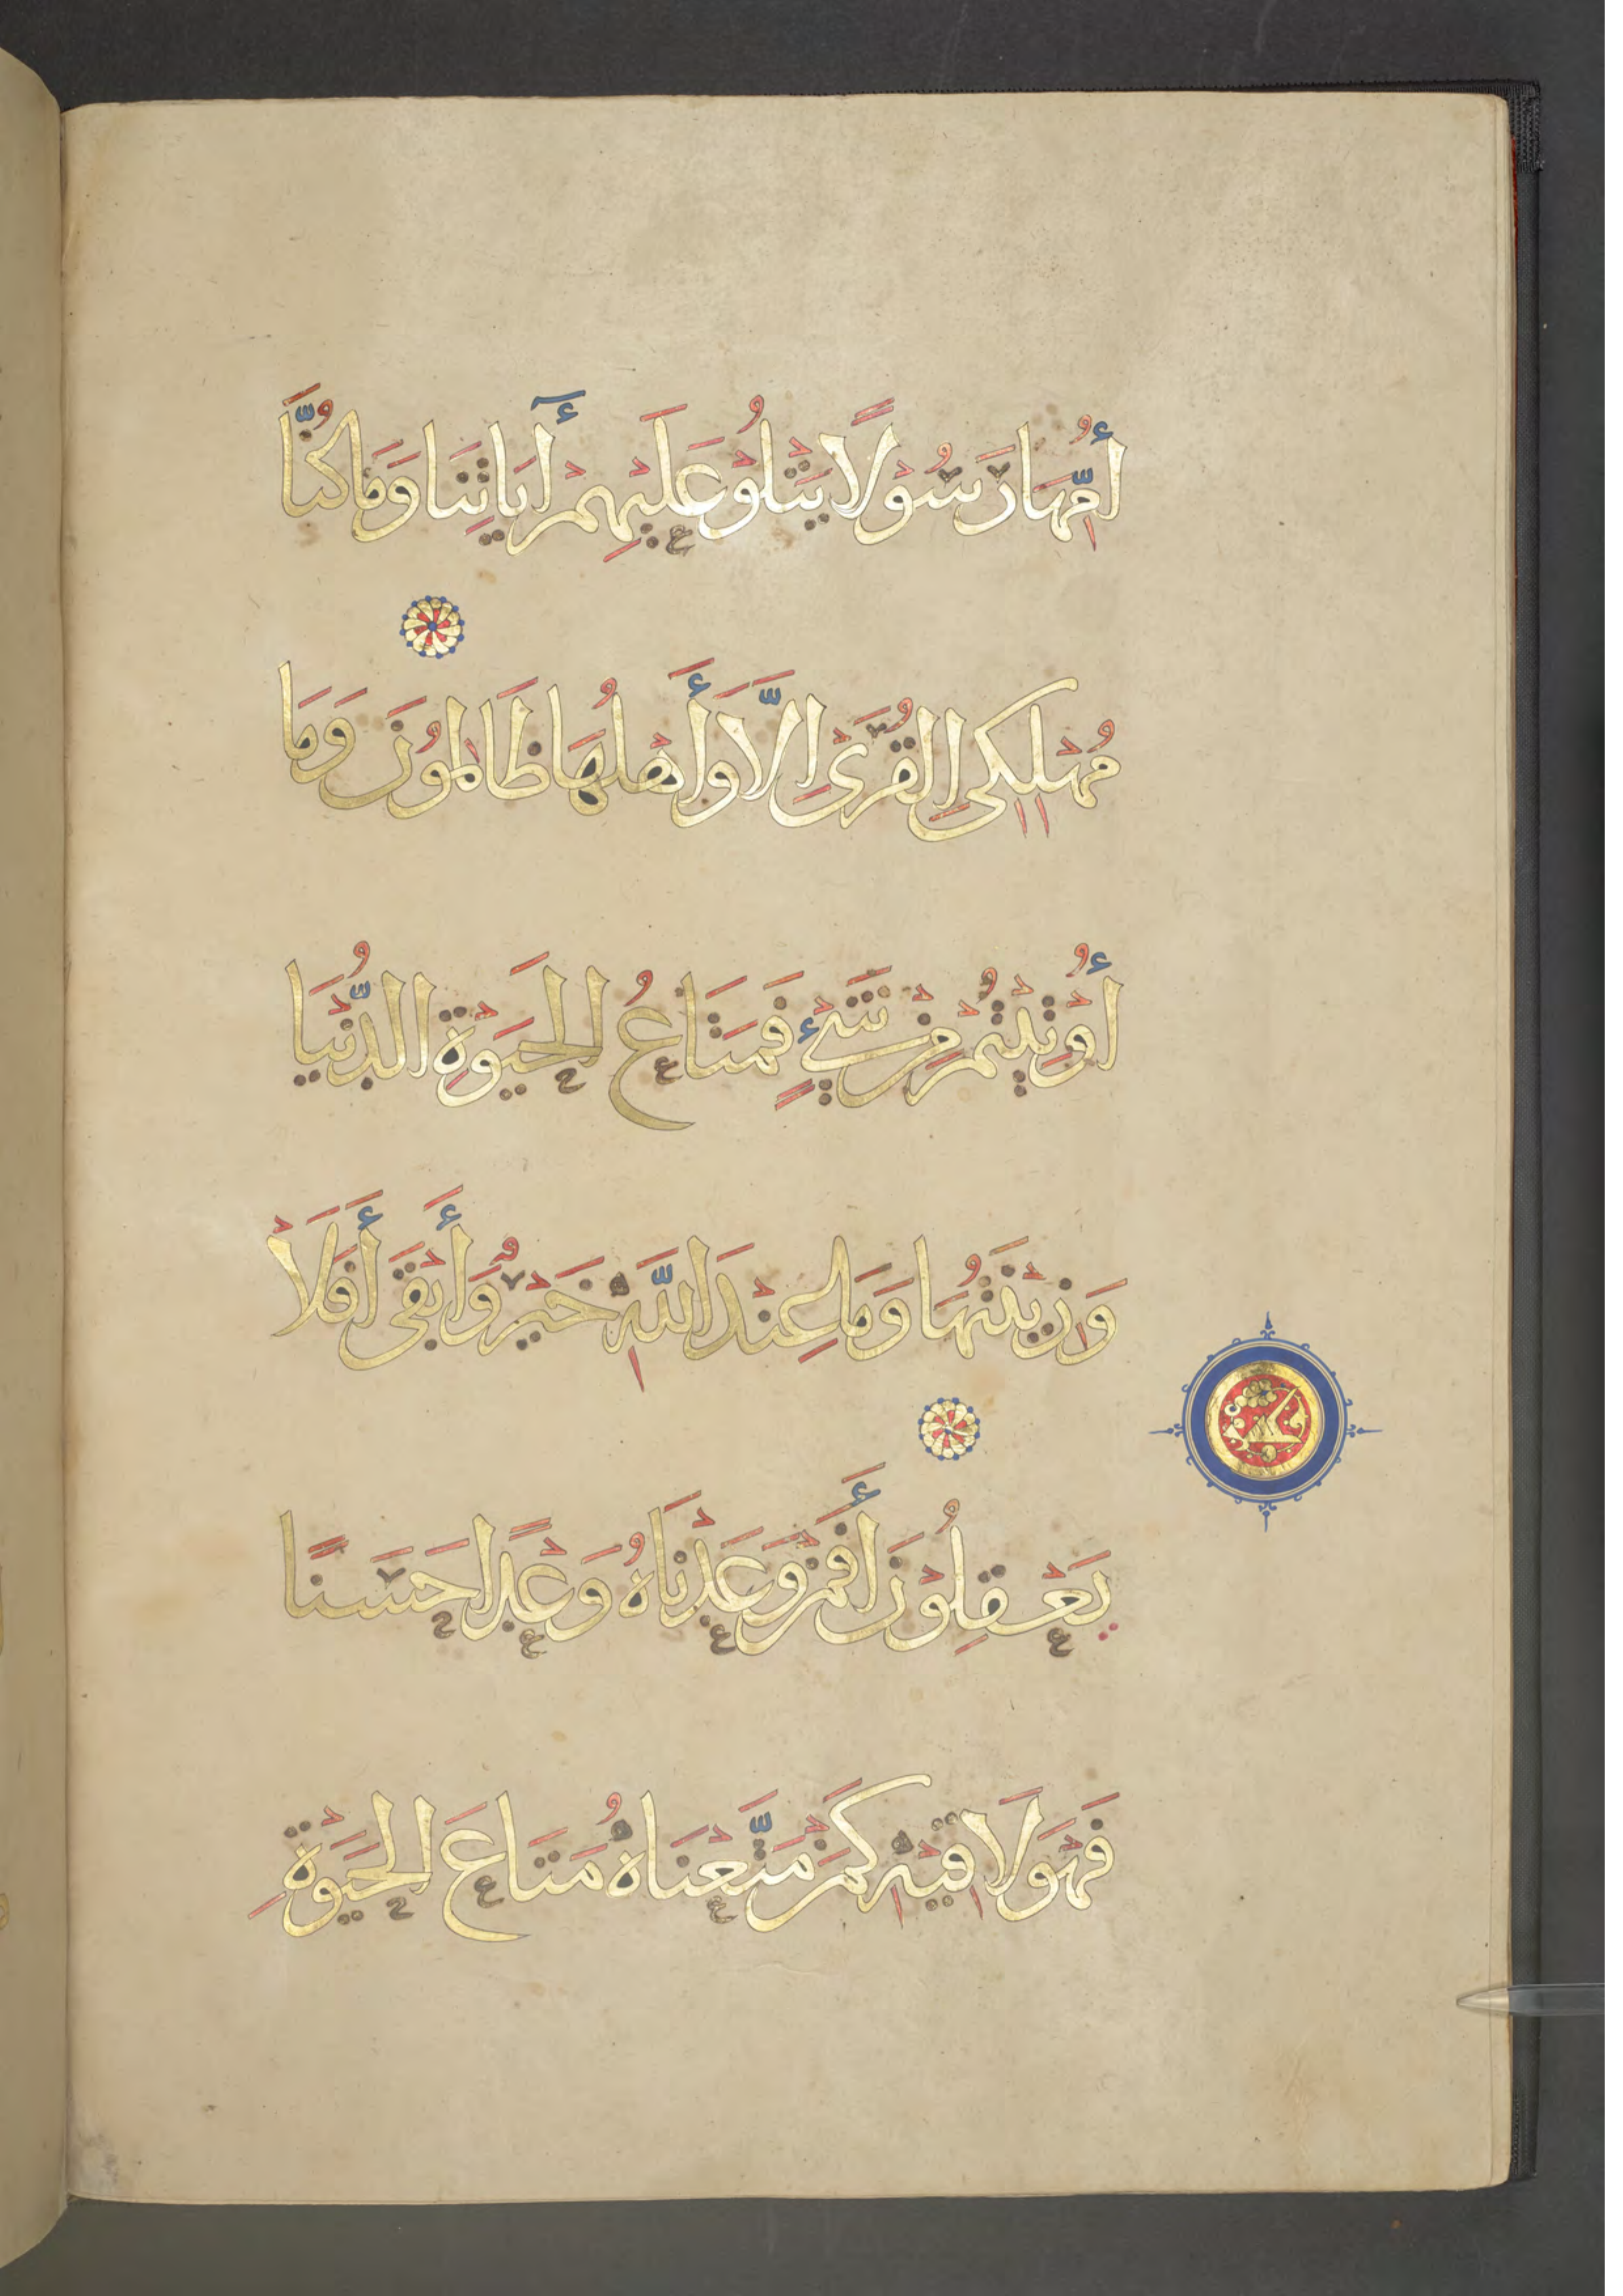 أُمِّهَا رَسُولًا يَتْلُو عَلَيْهِمْ أَيَاتِنَا وَمَا كُنَّا
مُهْلِكِي الْقُرَىٰ إِلَّا وَأَهْلُهَا ظَالِمُونَ وَمَا
أُوْتِيْتُمْ مِنْ شَيْءٍ فَمَتَاعُ الْحَيَوةِ الدُّنْيَا
وَزِيْنَتُهَا وَمَا عِنْدَ اللَّهِ خَيْرٌ وَأَبْقَى أَفَلَا
يَعْقِلُوْنَ أَفَمَنْ وَعَدْنَاهُ وَعْدًا حَسَنًا
فَهُوَ لَاقِيْهِ كَمَنْ مَتَّعْنَاهُ مَتَاعَ الْحَيَوةِ